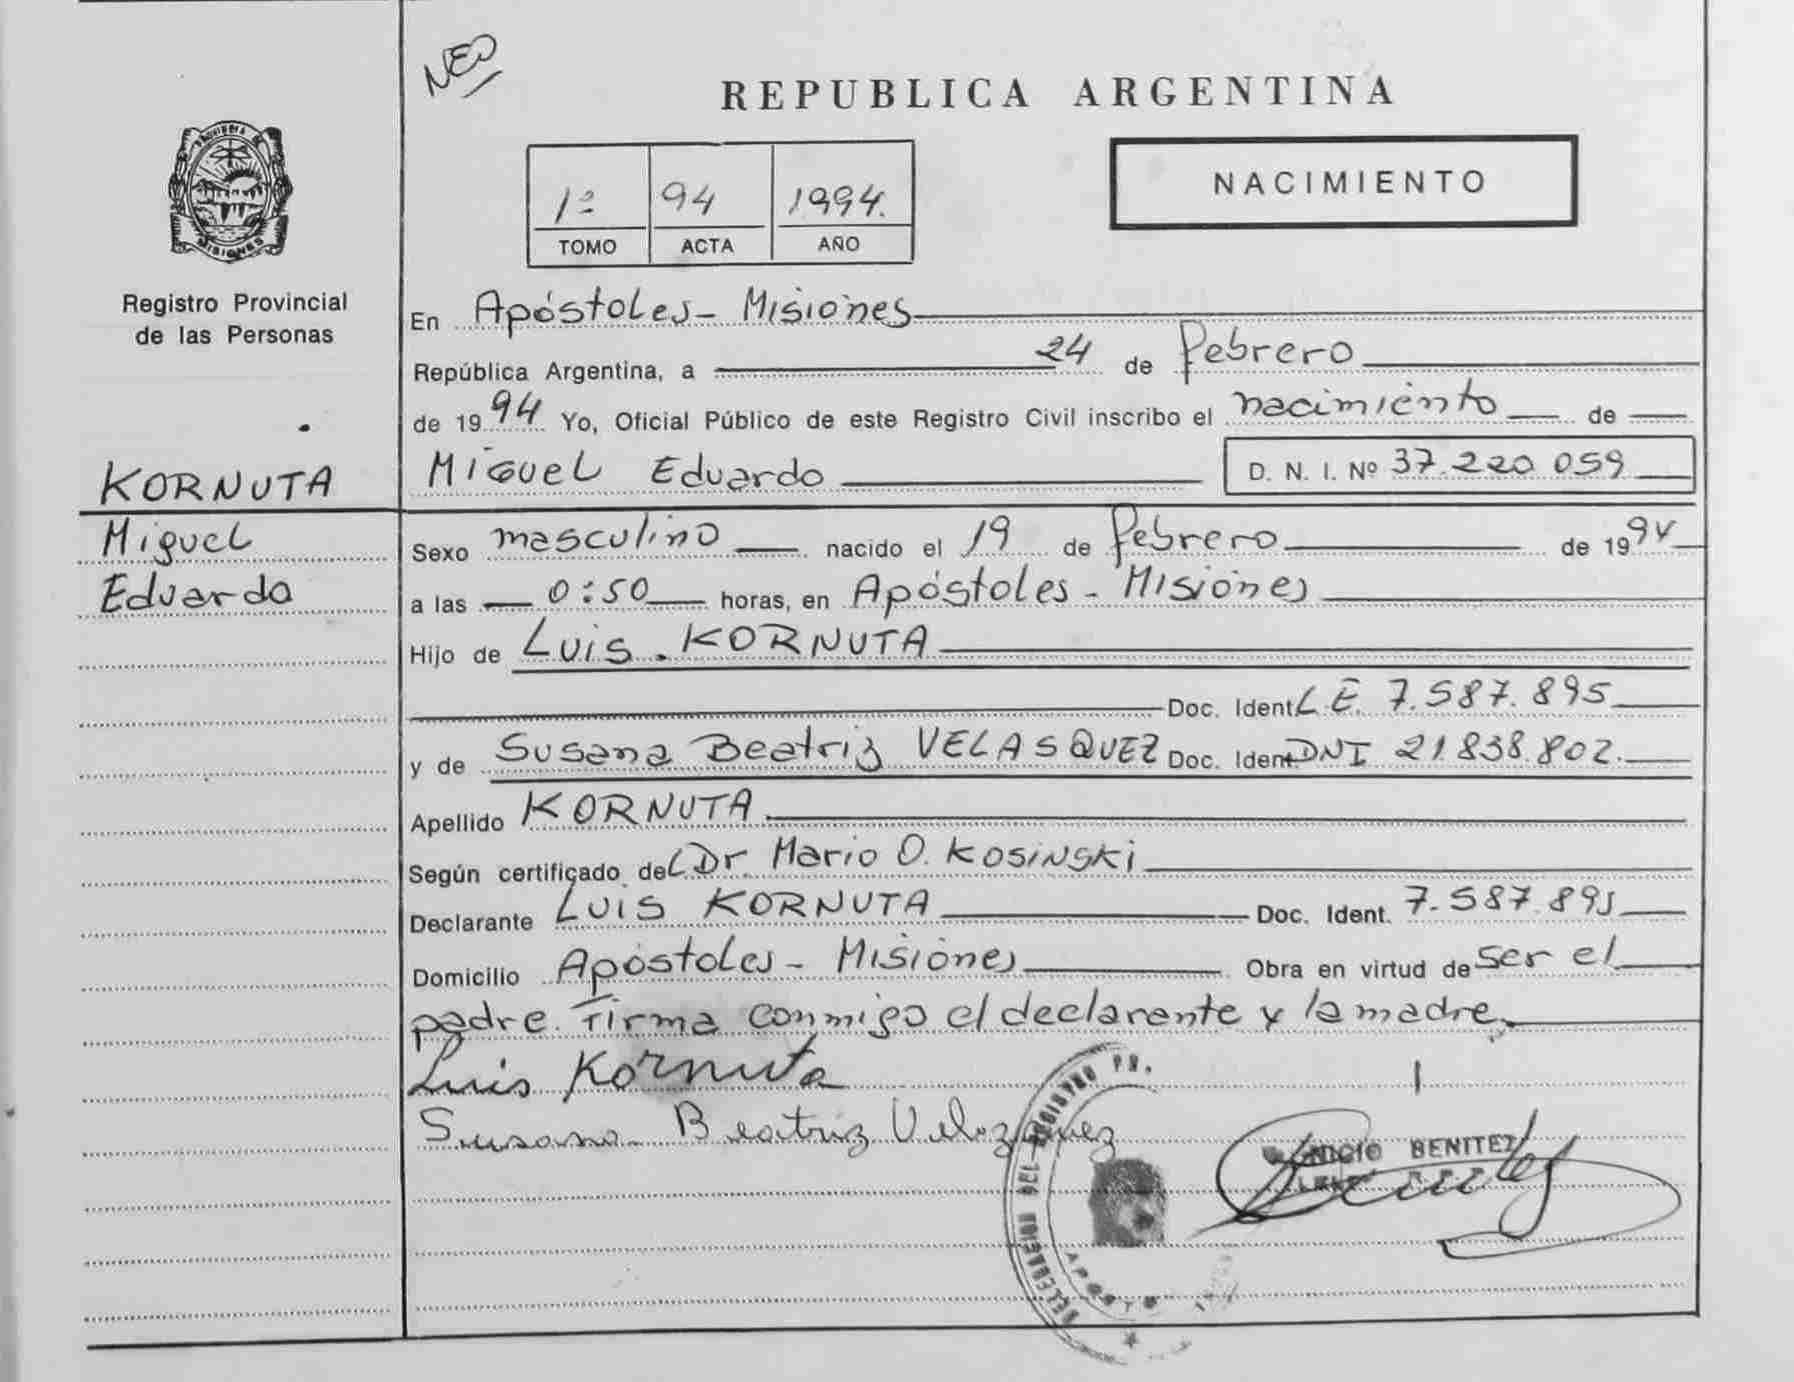 NEO
REPUBLICA ARGENTINA
PROVINCIA DE
MISIONES
1º 94 1994.
TOMO ACTA AÑO
NACIMIENTO
Registro Provincial
de las Personas
En Apóstoles - Misiones
República Argentina, a 24 de Febrero
de 1994 Yo, Oficial Público de este Registro Civil inscribo el nacimiento de
KORNUTA
Miguel Eduardo D. N. I. Nº 37.220.059
Miguel
Eduardo
Sexo masculino nacido el 19 de Febrero de 1994
a las 0:50 horas, en Apóstoles - Misiones
Hijo de Luis. KORNUTA
Doc. Ident. L.E. 7.587.895
y de Susana Beatriz VELASQUEZ Doc. Ident. DNI 21.838.802.
Apellido KORNUTA
Según certificado del Dr. Mario O. Kosinski
Declarante Luis KORNUTA Doc. Ident. 7.587.895
Domicilio Apóstoles - Misiones Obra en virtud de ser el
padre. Firma conmigo el declarante y la madre.
Luis Kornuta
Susana Beatriz Velazquez
BENITEZ
DELEGACION DEL REGISTRO PR.
APOSTO